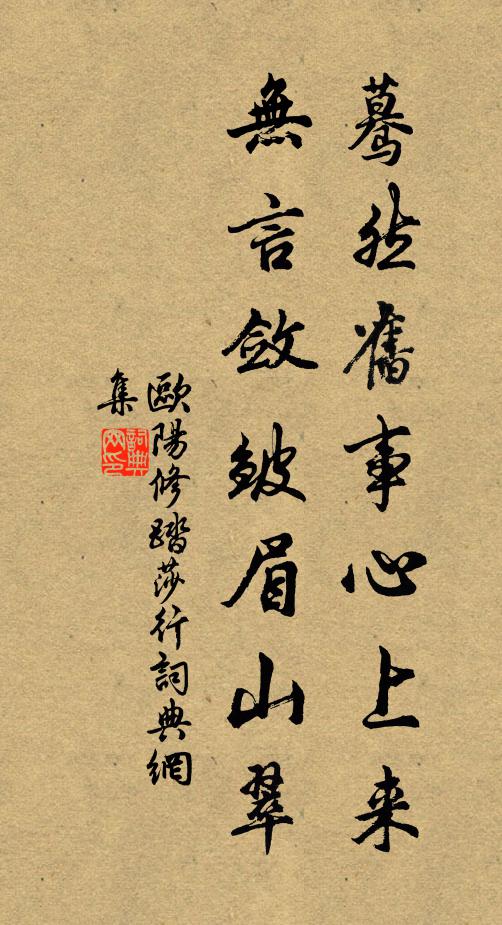 驀然舊事心上来
無言斂皴眉山翠
歐陽修踏莎行詞典網
集
詞典
网印